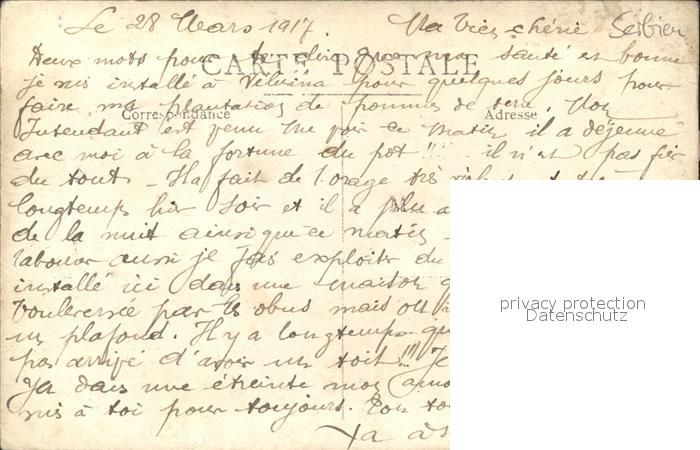 Le 28 Mars 1917. Ma bien chérie Serbien
Deux mots pour te dire que ma santé est bonne
CARTE POSTALE
je suis installé à pour quelques jours pour
faire ma plantation de pommes de terre. Mon
Correspondance Adresse
Intendant est venu me voir ce matin il a déjeuné
avec moi à la fortune du pot!! il n'est pas fier
du tout - Il a fait de l'orage très
longtemps hier soir et il a plu
de la nuit ainsi que ce matin -
labourer aussi je fais exploiter du
installé ici dans une maison
bouleversée par les obus mais où
un plafond. Il y a longtemps
pas arrivé d'avoir un toit!!! Je
dans une étreinte mon amo
suis à toi pour toujours. Ton
privacy protection
Datenschutz